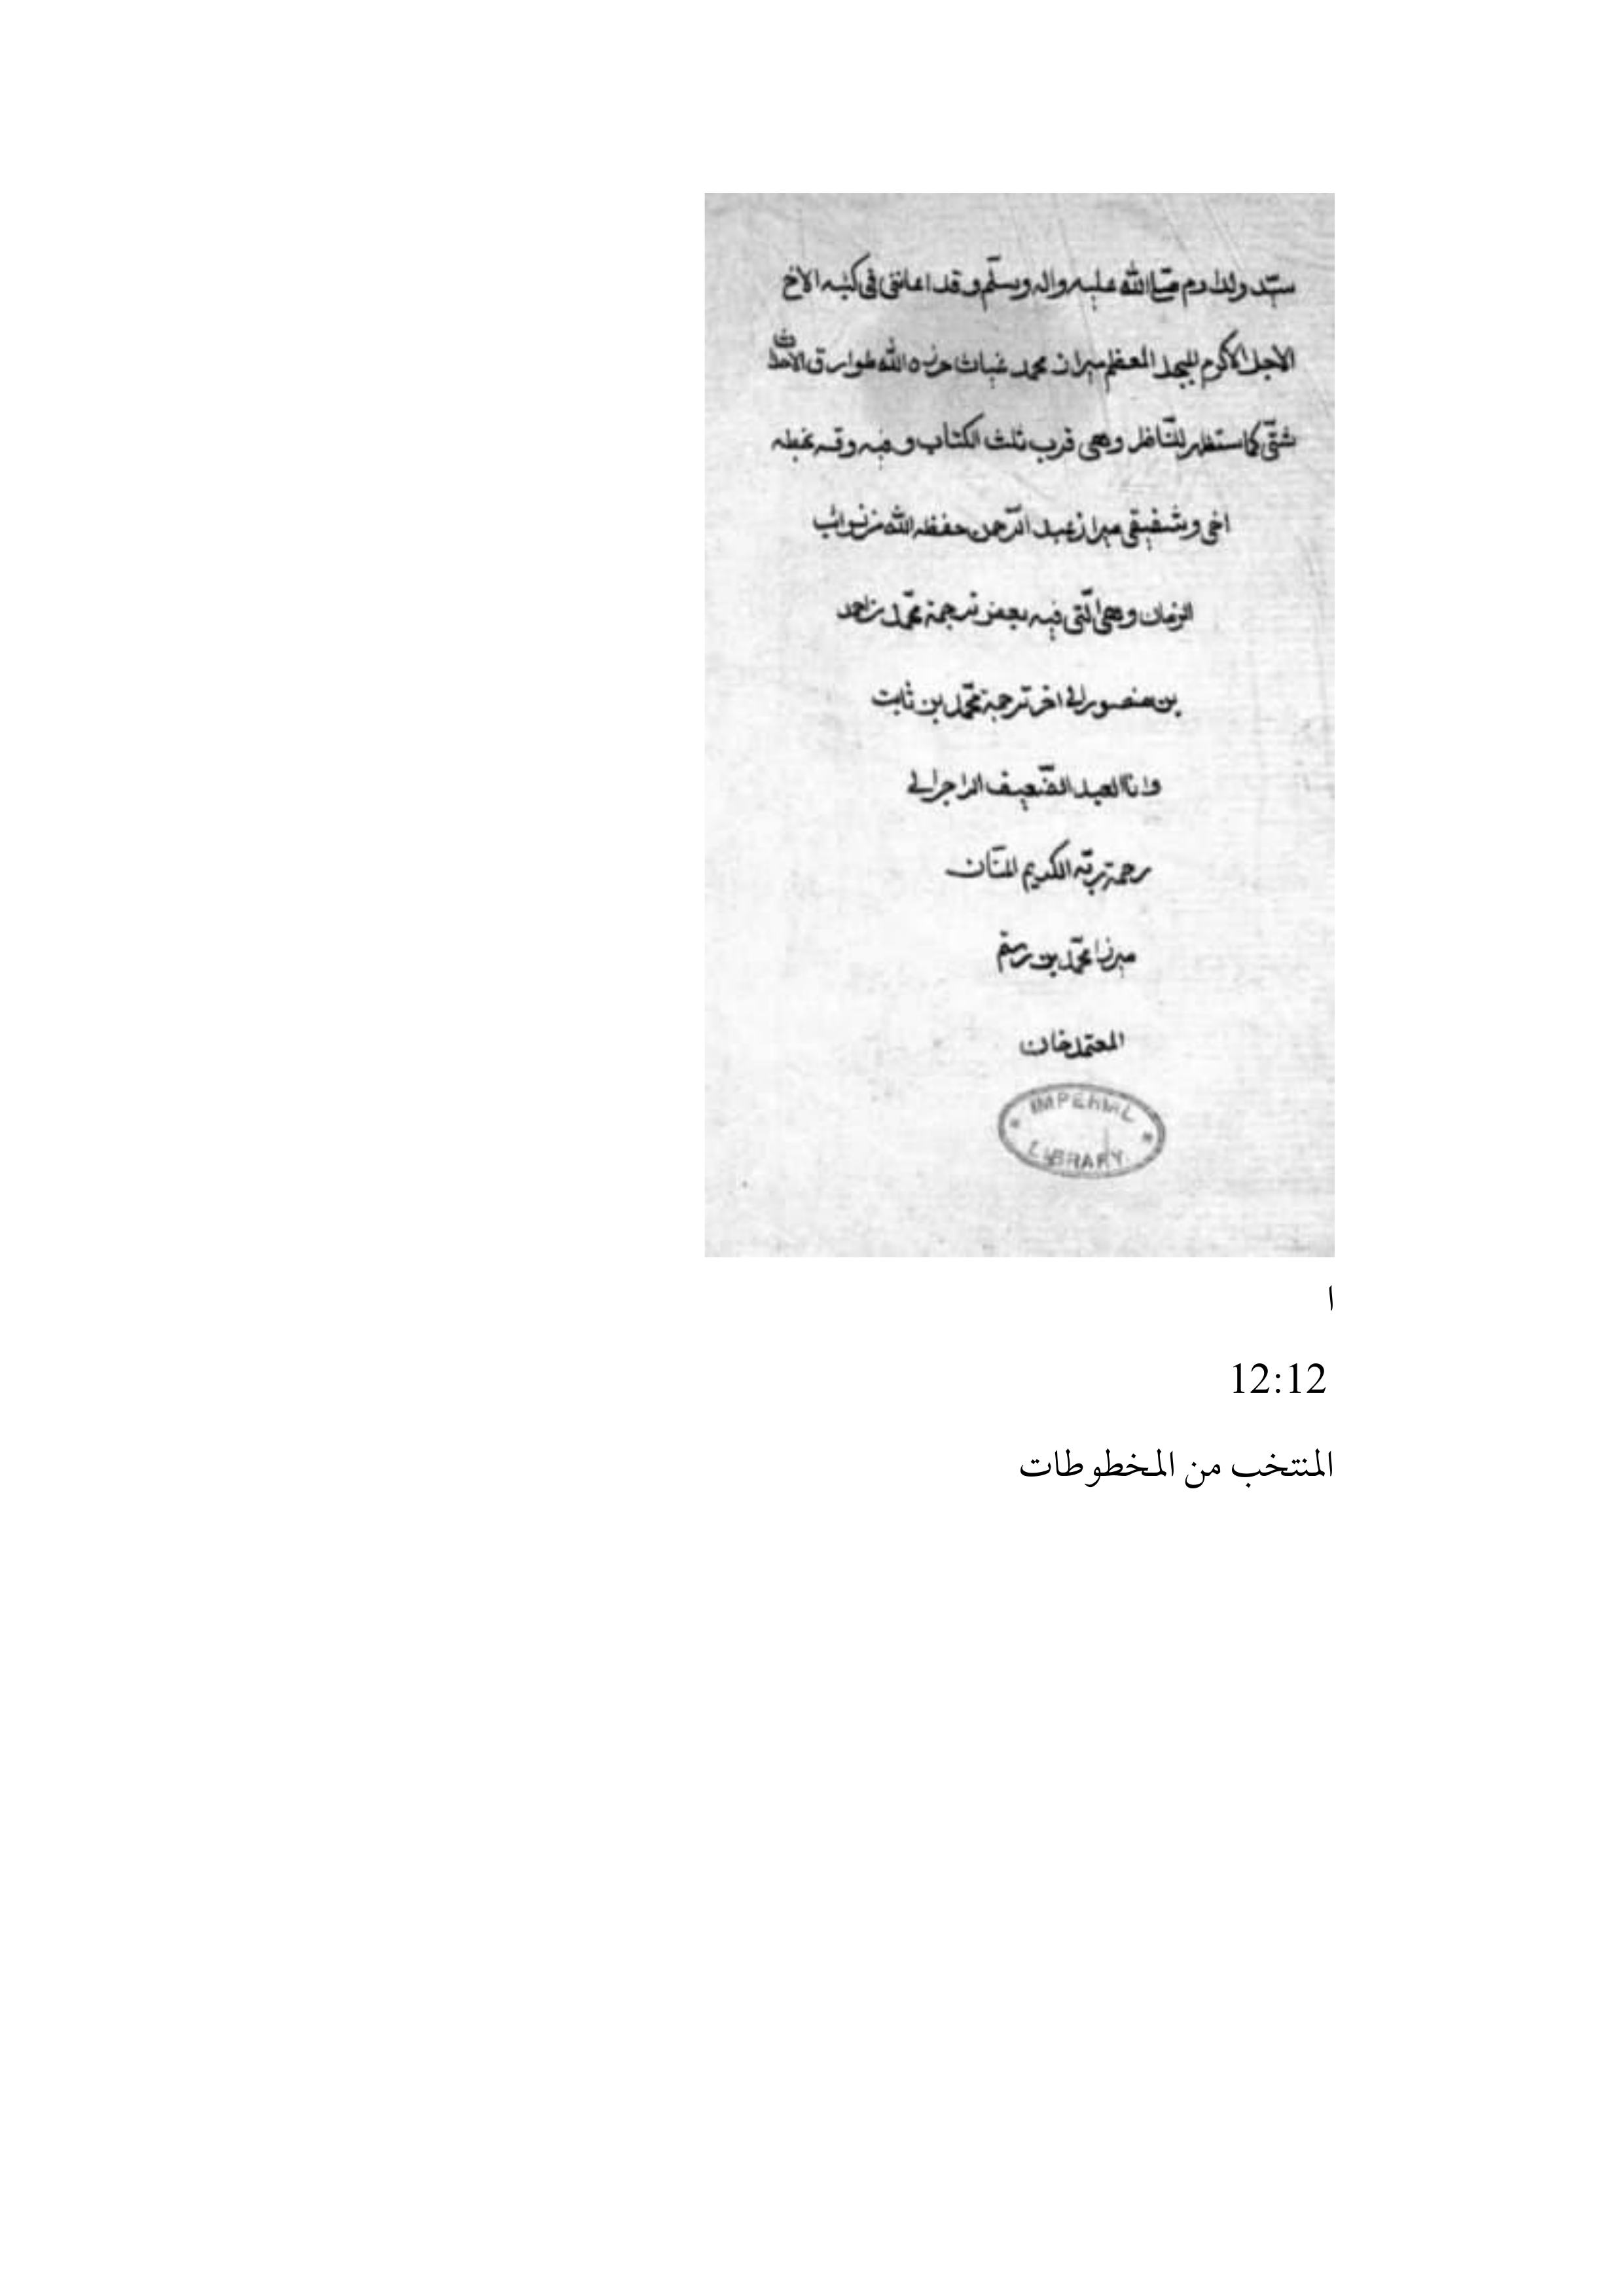 سيد ولد ادم صلى الله عليه واله وسلم وقد اعانني في كتبه الاخ
الاجل الاكرم المجد المعظم ميرزا محمد غياث الله طوارق
شتى كما ستظهر للناظر وهي قرب ثلث الكتاب و
اخي وشفيقي ميرزا عبد الرحمن حفظه الله من نوائب
الزمان وهي التي فيه بعض ترجمة محمد بن احمد
بن منصور الى اخر ترجمة محمد بن ثابت
وانا العبد الضعيف الراجي الى
رحمة ربه الكريم المنان
ميرزا محمد بن رستم
المعتمد خان
IMPERIAL
LIBRARY
ا
12:12
المنتخب من المخطوطات